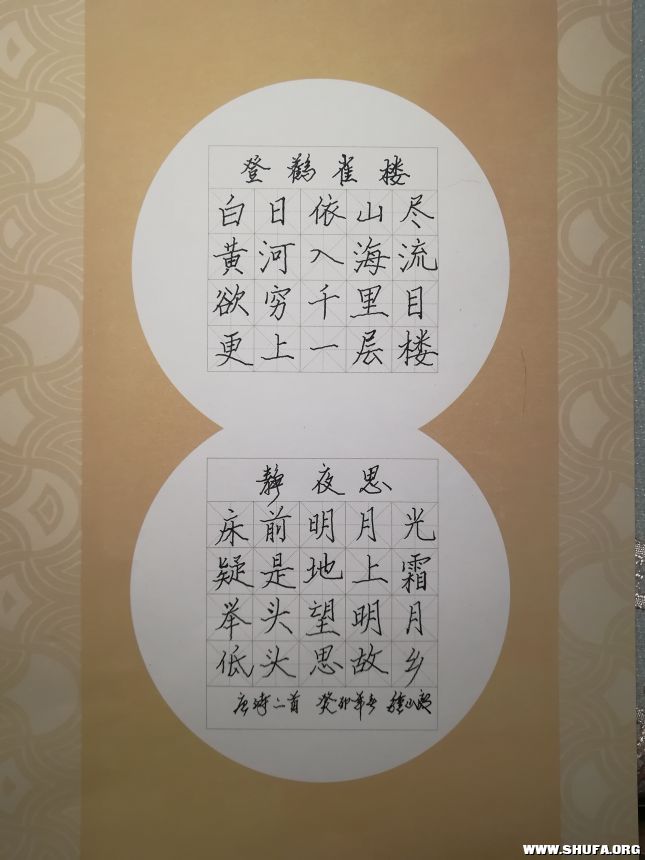 登鹳雀楼
白日依山尽
黄河入海流
欲穷千里目
更上一层楼
静夜思
床前明月光
疑是地上霜
举头望明月
低头思故乡
唐诗二首 癸卯年
WWW.SHUFA.ORG